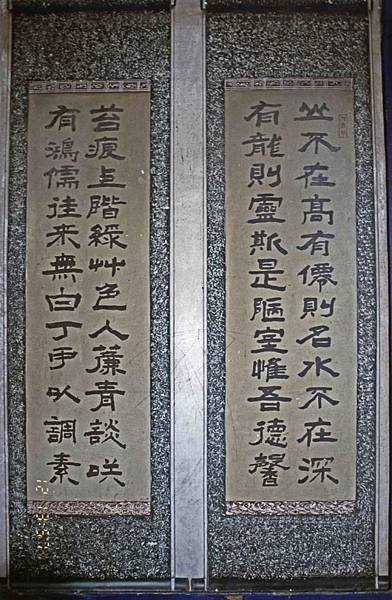 山不在高有僊則名水不在深
有龍則靈斯是陋室惟吾德馨
苔痕上階綠艸色入簾青談咲
有鴻儒往來無白丁可以調素